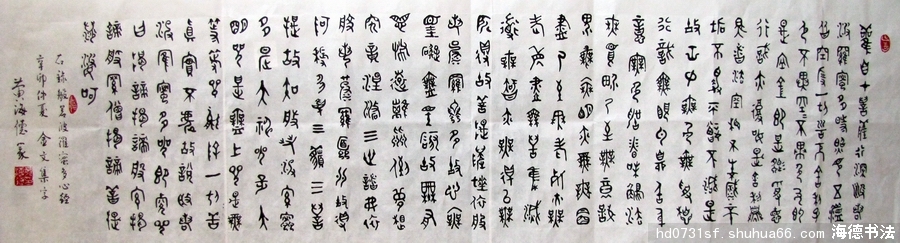 觀自在菩薩行深般若
波羅蜜多時照見五蘊
皆空度一切苦厄舍利子
色不異空空不異色色即
是空空即是色受想
行識亦復如是舍利子
是諸法空相不生不滅不
垢不淨不增不減是
故空中無色無受想
行識無眼耳鼻舌身
意無色聲香味觸法
無眼界乃至無意識
界無無明亦無無明
盡乃至無老死亦無
老死盡無苦集滅
道無智亦無得以無
所得故菩提薩埵依般
若波羅蜜多故心無
罣礙無罣礙故無有
恐怖遠離顛倒夢想
究竟涅槃三世諸佛依
般若波羅蜜多故得
阿耨多羅三藐三菩
提故知般若波羅蜜
多是大神咒是大
明咒是無上咒是無
等等咒能除一切苦
真實不虛故說般若
波羅蜜多咒即說咒
曰揭諦揭諦波羅揭
諦波羅僧揭諦菩提
薩婆訶
右錄般若波羅蜜多心經
辛卯仲夏金文集字
黃海儒篆
hd0731sf.shuhua66.com 海德书法